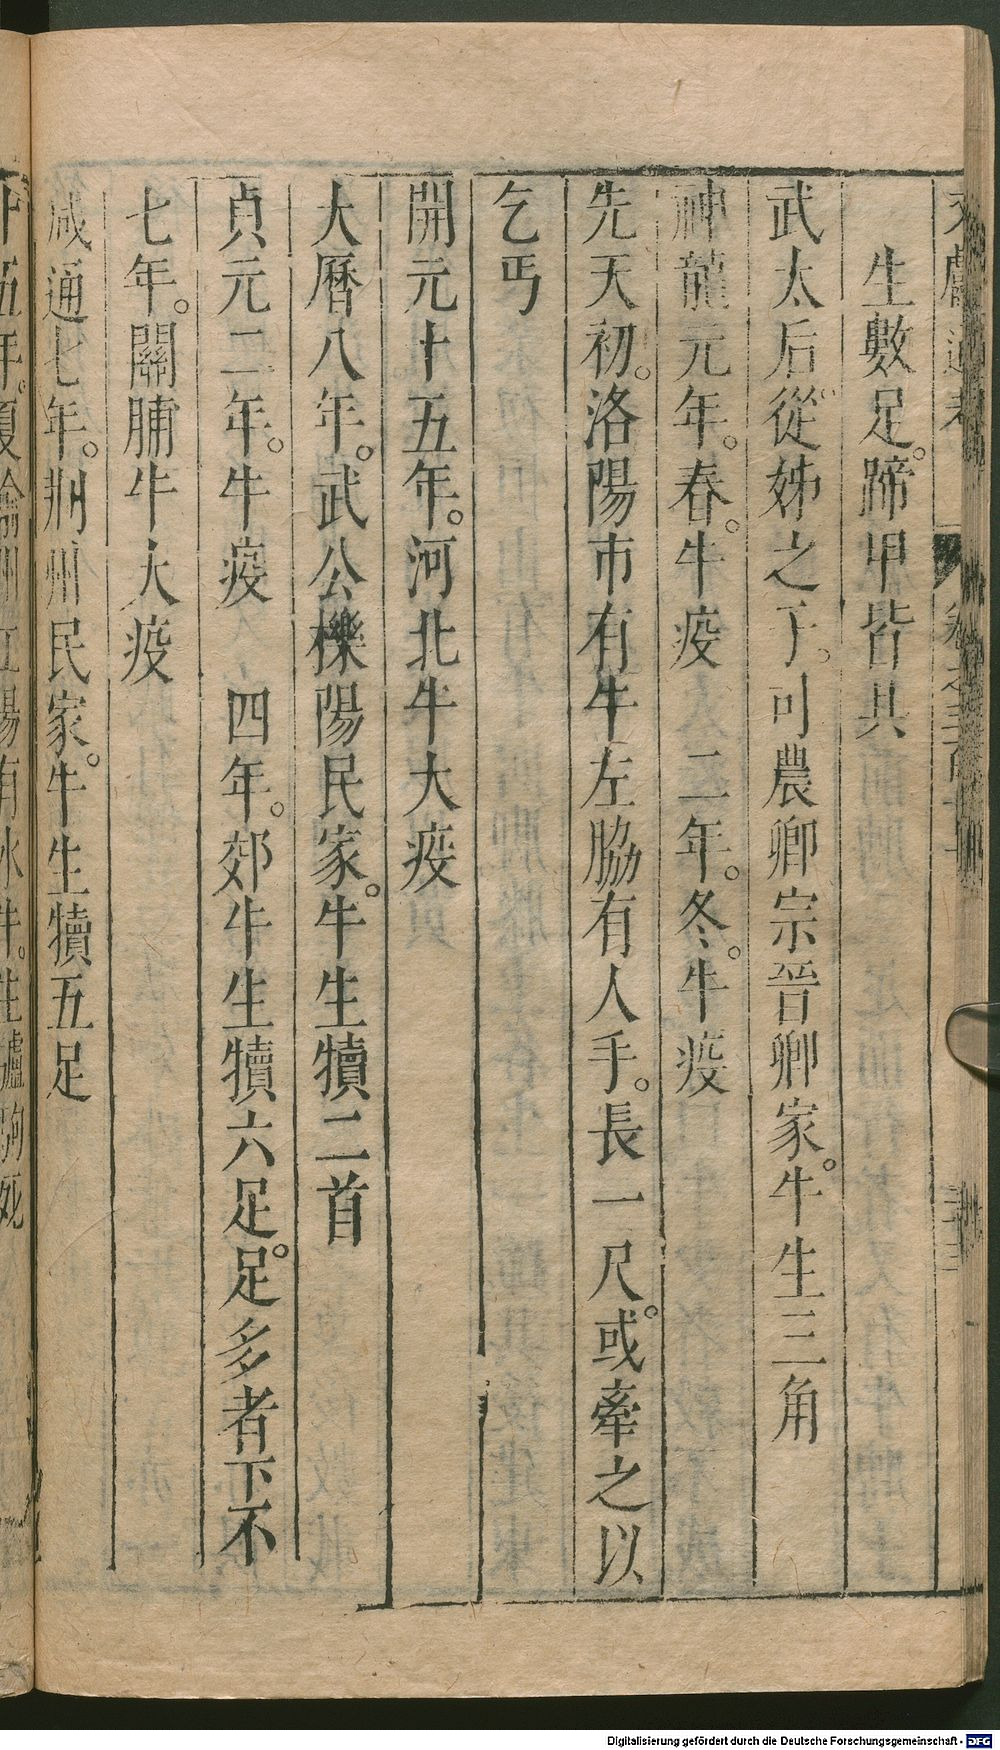 文獻通考 卷之三百十一
生數足。蹄甲皆具
武太后從姊之子。司農卿宗晉卿家。牛生三角
神龍元年。春。牛疫 二年。冬。牛疫
先天初。洛陽市有牛左脇有人手。長一尺。或牽之以
乞丐
開元十五年。河北牛大疫
大曆八年。武公櫟陽民家。牛生犢二首
貞元二年。牛疫 四年。郊牛生犢六足。足多者下不
七年。關脯牛大疫
咸通七年。荆州民家。牛生犢五足
十五年。夏渝州江陽有水牛。生驢駒死
Digitalisierung gefördert durch die Deutsche Forschungsgemeinschaft - DFG